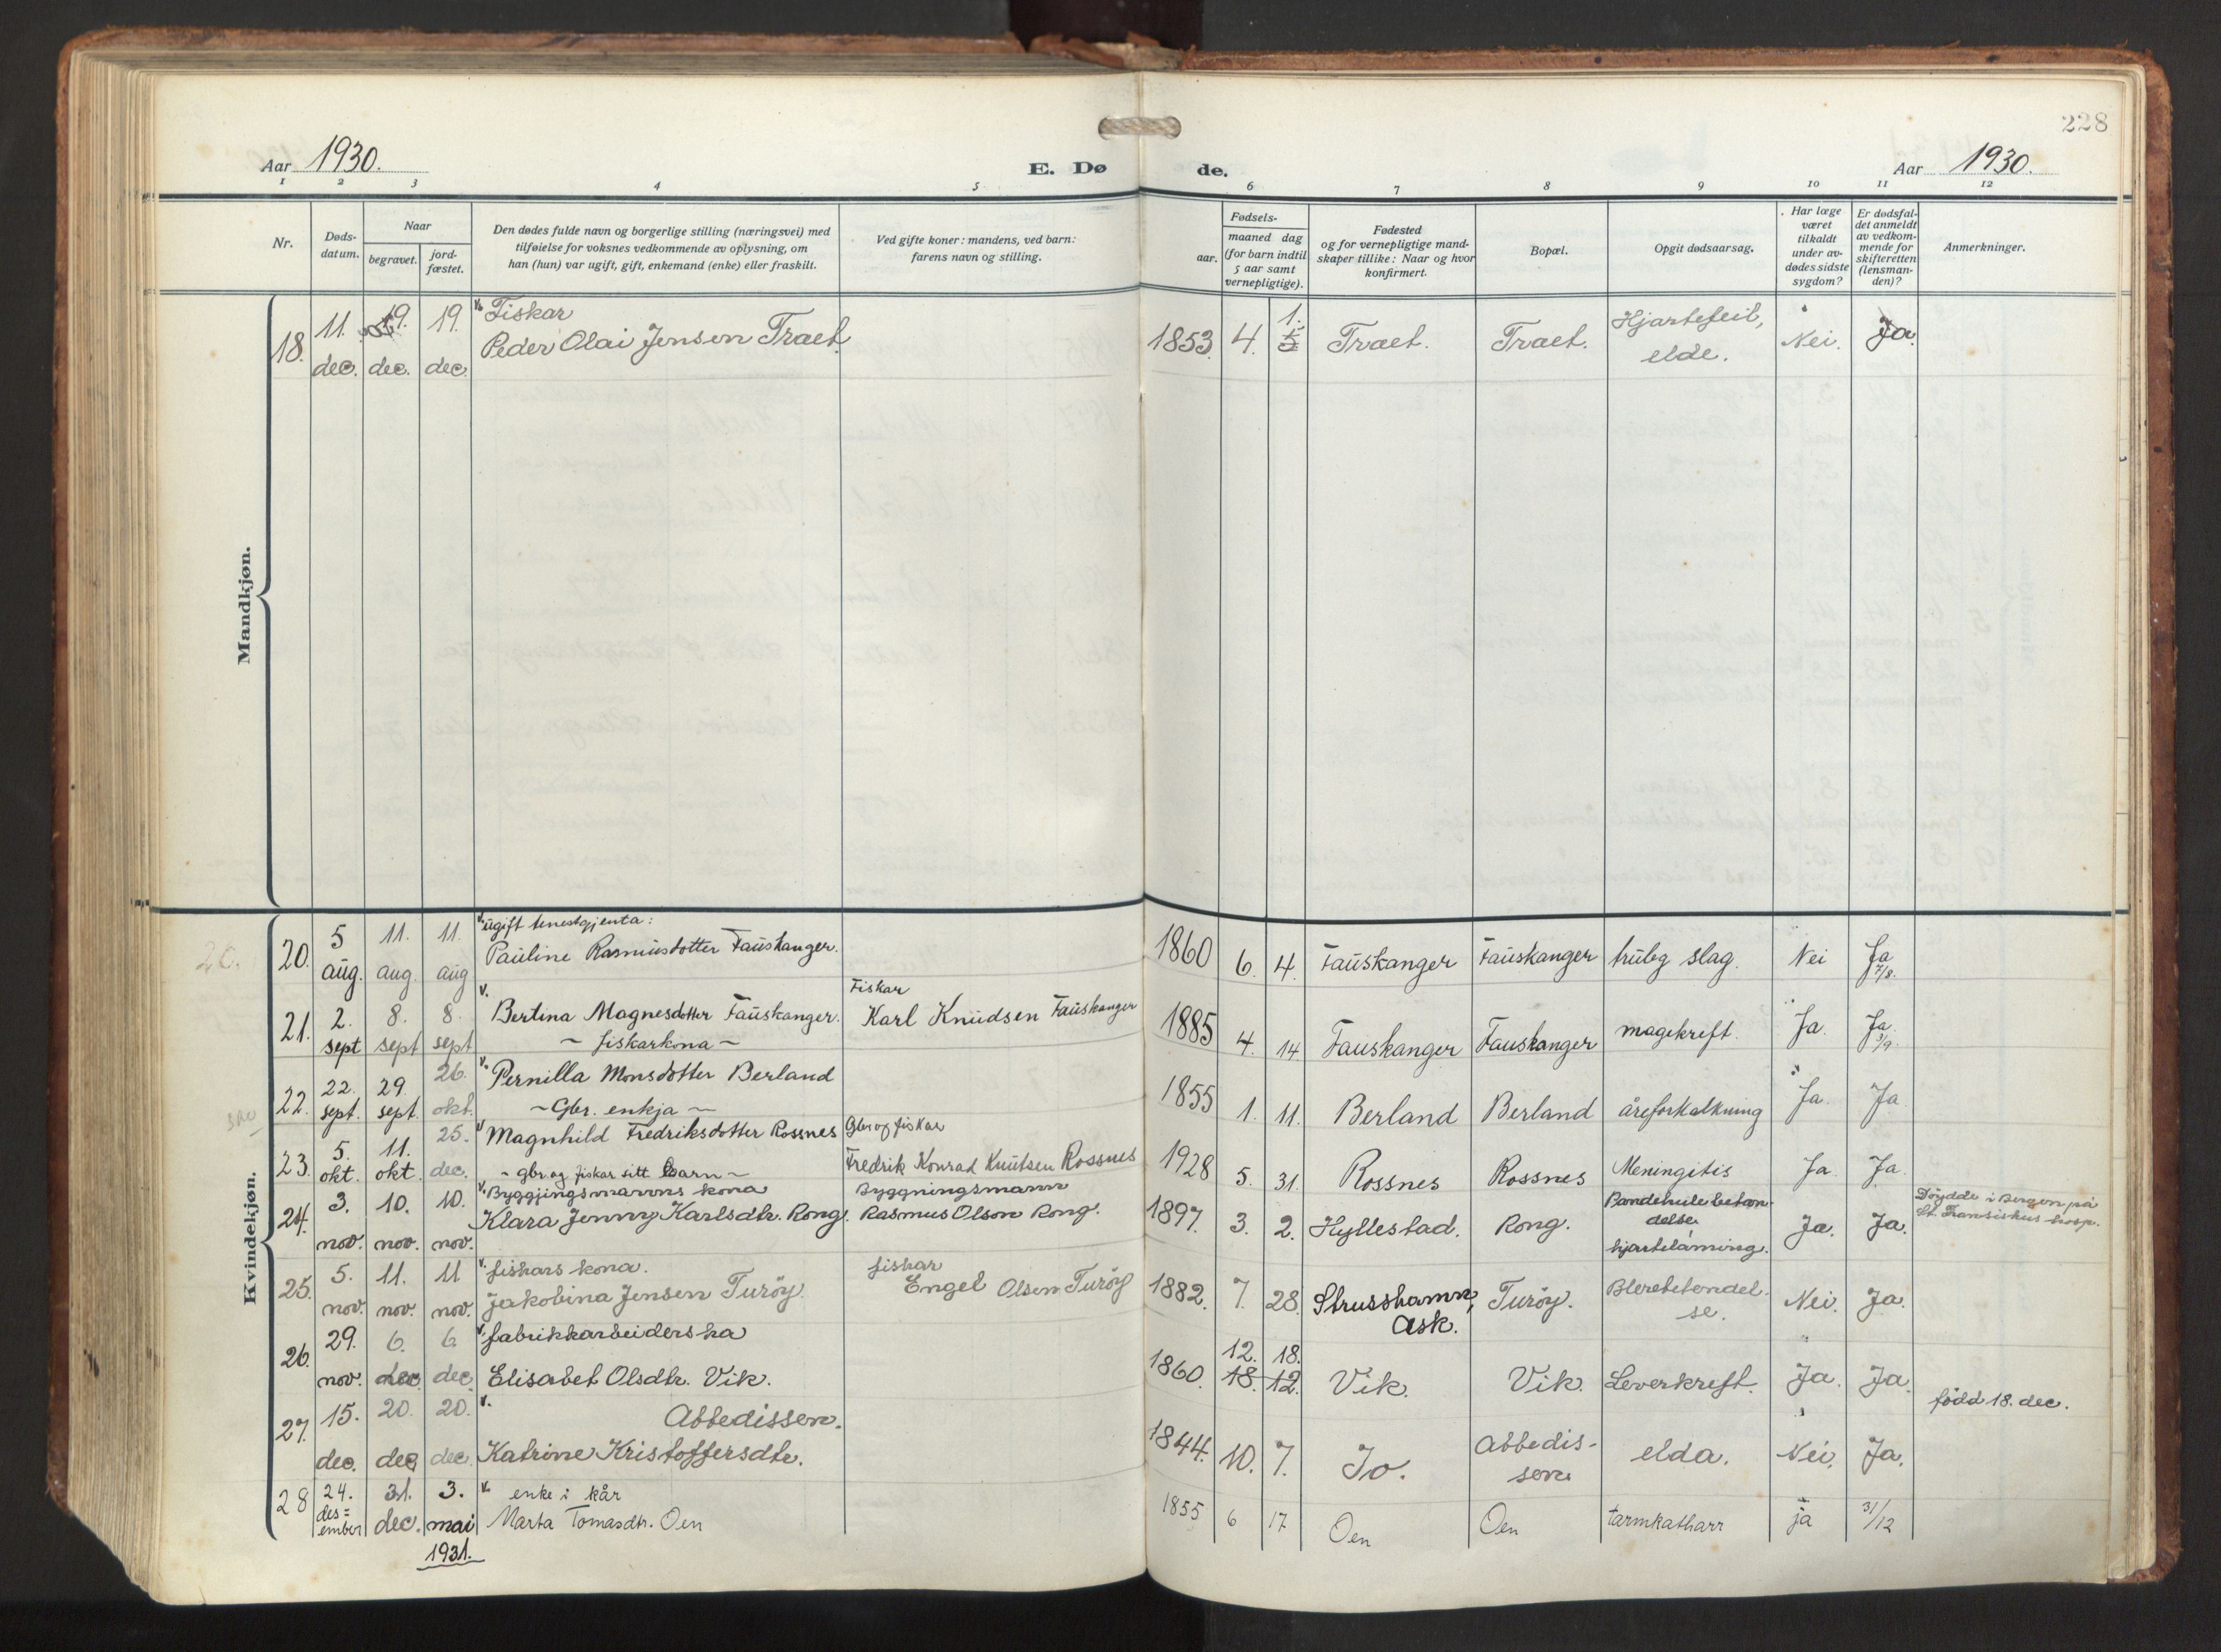 228
Aar 1930.
E. Dø
de.
Aar 1930.
1 2 3 4 5 6 7 8 9 10 11 12
Nr.
Døds-
datum.
Naar
begravet.
jord-
fæstet.
Den dødes fulde navn og borgerlige stilling (næringsvei) med
tilføielse for voksnes vedkommende av oplysning, om
han (hun) var ugift, gift, enkemand (enke) eller fraskilt.
Ved gifte koner: mandens, ved barn:
farens navn og stilling.
Fødsels-
aar.
maaned dag
(for barn indtil
5 aar samt
vernepligtige).
Fødested
og for vernepligtige mand-
skaper tillike: Naar og hvor
konfirmert.
Bopæl.
Opgit dødsaarsag.
Har læge
været
tilkaldt
under av-
dødes sidste
sygdom?
Er dødsfal-
det anmeldt
av vedkom-
mende for
skifteretten
(lensman-
den)?
Anmerkninger.
Mandkjøn.
18. 11. dec. 19. dec. 19. dec.
v. Fiskar
Peder Olai Jensen Træt.
1853 4. 1. Træt. Træt. Hjartefeil,
elde.
Nei. Ja.
Kvindekjøn.
20. 5 aug. 11. aug. 11. aug
v. ugift tenestgjenta:
Pauline Rasmusdotter Fauskanger.
1860 6. 4. Fauskanger Fauskanger truleg slag. Nei Ja
7/8.
21. 2. sept 8. sept 8. sept
v. Bertina Magnesdotter Fauskanger.
~ fiskarkona ~
Fiskar
Karl Knudsen Fauskanger
1885 4. 14. Fauskanger Fauskanger magekreft. Ja. Ja.
3/9.
22. 22. sept. 29. sept. 26. okt.
v. Pernilla Monsdotter Berland
~ Gbr. enkja ~
1855 1. 11. Berland Berland åreforkalkning Ja. Ja
23. 5. okt. 11. okt. 25. dec.
v. Magnhild Fredriksdotter Rossnes
~ gbr. og fiskar sitt barn ~
Gbr og fiskar
Fredrik Konrad Knutsen Rossnes
1928 5. 31. Rossnes Rossnes Meningitis Ja. Ja.
24. 3. nov. 10. nov. 10. nov.
v. Byggjingsmanns kona
Klara Jenny Karlsdtr. Rong.
Byggningsmann
Rasmus Olson Rong.
1897. 3. 2. Hyllestad. Rong.
delse
hjartelaming.
Ja. Ja.
Døydde i Bergen på
St. Fransiskus hosp.
25. 5. nov. 11. nov. 11 nov.
v. fiskars kona.
Jakobina Jensen Turöy.
fiskar
Engel Olsen Turöy
1882. 7. 28. Strusshamn,
Ask.
Turöy.
se.
Nei. Ja.
26. 29. nov. 6. dec. 6. dec.
v. fabrikkarbeiderska
Elisabet Olsdtr. Vik.
12. 18.
1860. 18. 12. Vik. Vik. Leverkreft. Ja. Ja.
född 18. dec.
27. 15. dec. 20. dec. 20. dec.
v. Abbedissen.
Katrine Kristoffersdtr.
1844. 10. 7. Jo. Abbedis-
sen
elda. Nei. Ja.
28 24. des=
ember
31. dec. 3. mai
1931.
v. enke i kår
Marta Tomasdtr. Oen
1855 6 17 Oen Oen tarmkatharr ja 31/12